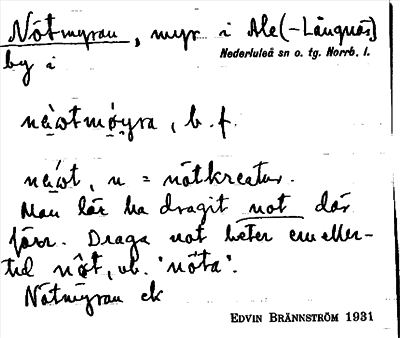 Nötmyran, myr i Ale (-Långnäs)
Nederluleå sn o. tg. Norrb. l.
by i
, b. f.
n = nötkreatur.
Man lär ha dragit not där
förr. Draga not heter emeller-
tid nöt, vb. "nöta".
Nötmyran ek
EDVIN BRÄNNSTRÖM 1931